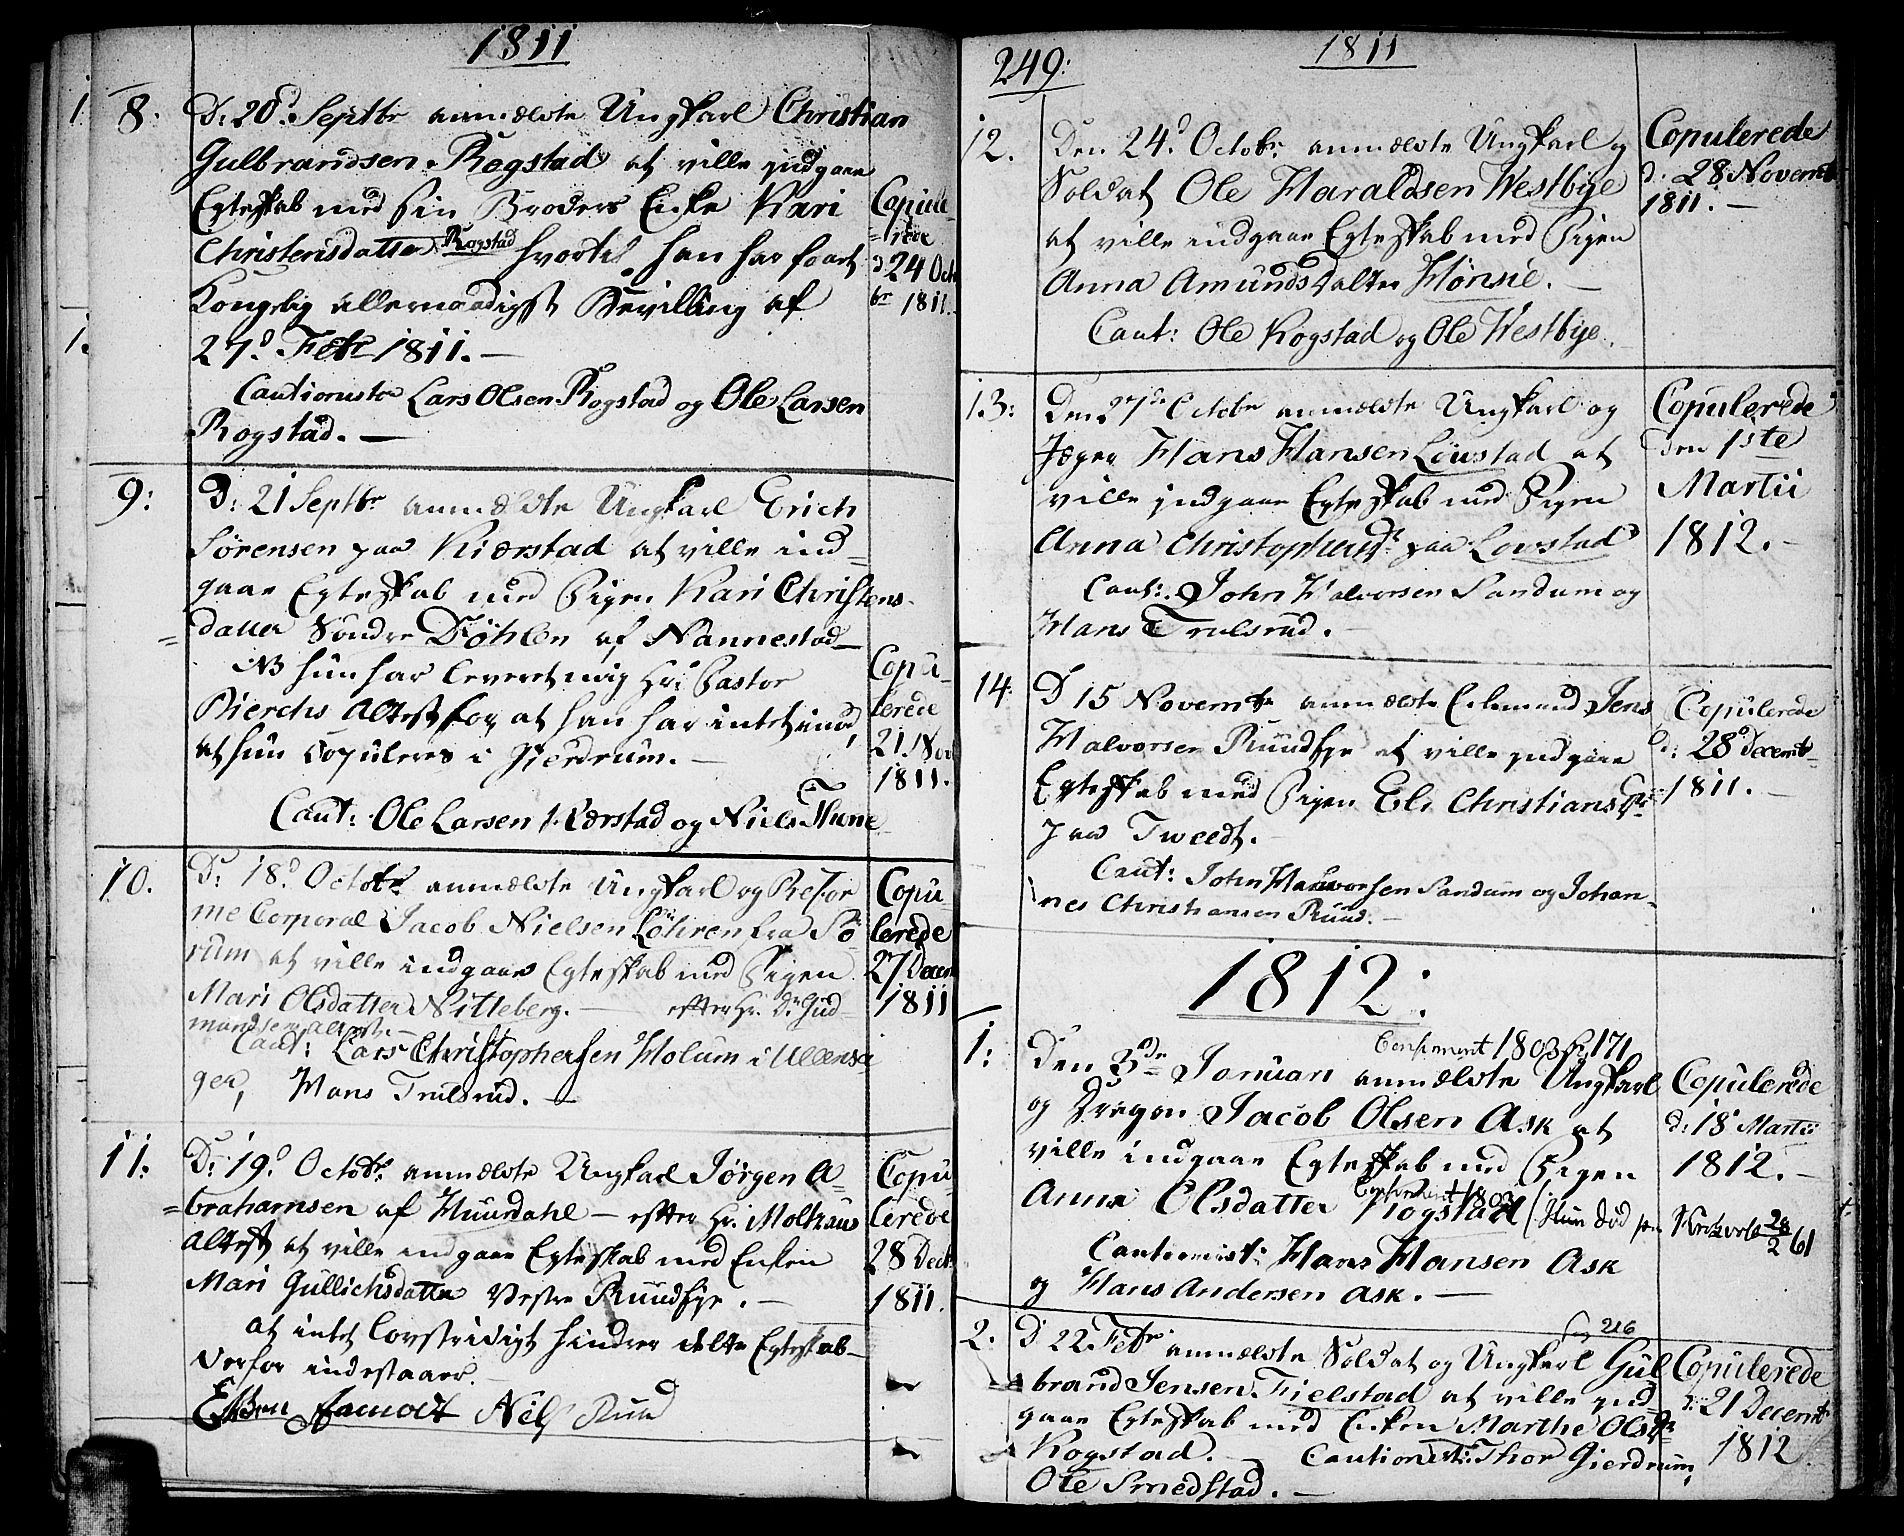 1811
8.
D: 20.d Septbr anmældte Ungkarl Christian
Gulbrandsen Rogstad at ville indgaae
Egteskab med sin Broders Enke Kari
Christensdatter Rogstad hvortil han har faaet
Kongelig allernaadigst Bevilling af
27.d Febr 1811.
Cautionister Lars Olsen Rogstad og Ole Larsen
Rogstad.
Copule-
=rede
d. 24 Octo
br 1811.
9:
D: 21 Septbr anmældte Ungkarl Erich
Sørensen paa Kiærstad at ville ind=
gaae Egteskab med Pigen Kari Christens-
=datter Søndre Døhlen af Nannestad
NB hun har leveret mig Hr: Pastor
Bierchs Attest for at han har intet imod,
at hun Copuleres i Gierdrum.
Caut: Ole Larsen Kiærstad og Niels Thune
Copu-
lerede
21. Nov
1811.
10.
D: 18.d Octobr anmældte Ungkarl og Refor
me Corporal Jacob Nielsen Løhren fra Sø
rum at ville indgaae Egteskab med Pigen
Mari Olsdatter Nitteberg. efter Hr. Dr Gud-
mundsens attest.
Caut: Lars Christophersen Holum i Ullensa
ger, Hans Trulsrud.
Copu-
lerede
27 Decem
1811
11.
D: 19.d Octobr anmældte Ungkarl Jørgen A=
=brahamsen af Huurdahl - efter Hr. Moltzaus
Attest at ville indgaae Egteskab med Enken
Mari Gullichsdatter Vestre Ruudsye.
at intet lovstridigt hindrer dette Egteskab
derfor indestaaer.
Niels Ruud
Copu-
lerede
28 Decb
1811.
249:
1811
12.
Den 24.d Octobr. anmældte Ungkarl og
Soldat Ole Haraldsen Westbye
at ville indgaae Egteskab med Pigen
Anna Amundsdatter Hønsie.
Caut: Ole Rogstad og Ole Westbye.
Copulerede
d. 28 Novemb
1811.
13:
Den 27de Octobr anmældte Ungkarl og
Jæger Hans Hansen Løwstad at
ville indgaae Egteskab med Pigen
Anna Christophersdr paa Lovstad
Caut: John Halvorsen Sandum og
Hans Trulsrud.
Copulerede
den 1ste
Martii
1812.
14:
D 15 Novembr anmældte Enkemand Jens
Halvorsen Ruudsye at ville indgaae
Egteskab med Pigen Eli Christiansdr
paa Tweedt.
Caut: John Halvorsen Sandum og Johan-
nes Christiansen Ruud.
Copulerede
d: 28.d Decemb
1811.
1812:
1:
Confirmeret 1803 pag 171
Den 3de Januari anmældte Ungkarl
og Dragon Jacob Olsen Ask at
ville indgaae Egteskab med Pigen
Confirmeret 1803
Anna Olsdatter Rogstad (Hun død paa 28/2 61
Cautionist: Hans Hansen Ask
og Hans Andersen Ask.
Copulerede
d: 18 Martii
1812.
2.
pag 216
D 22 Febr anmældte Soldat og Ungkarl Gul
brand Jensen Fielstad at ville ind
gaae Egteskab med Enken Marthe Olsdr
Rogstad. Cautionist: Thor Gierdrum,
Ole Smedstad.
Copulerede
d: 21 Decemb
1812